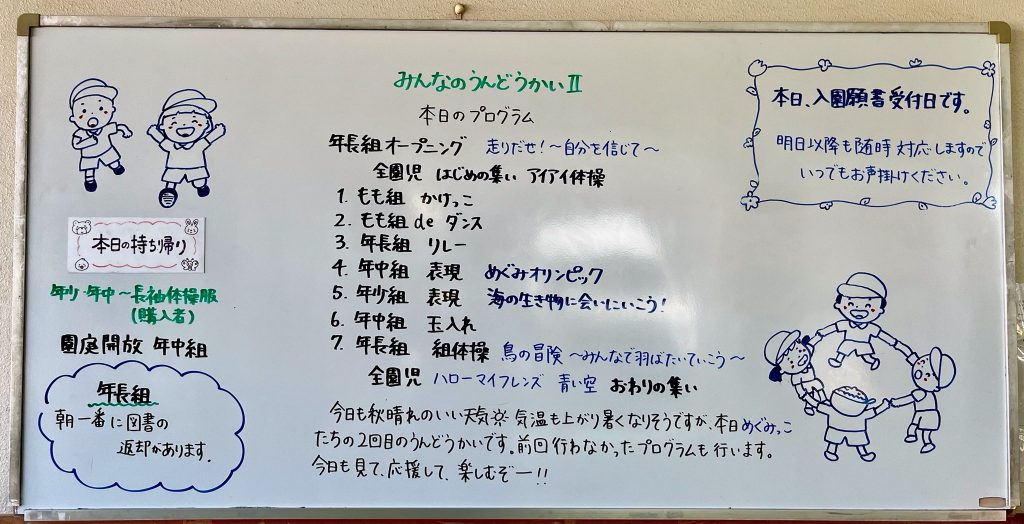 みんなのうんどうかいⅡ
本日のプログラム
年長組オープニング 走りだせ!～自分を信じて～
全園児 はじめの集い アイアイ体操
1. もも組 かけっこ
2. もも組 de ダンス
3. 年長組 リレー
4. 年中組 表現 めぐみオリンピック
5. 年少組 表現 海の生き物に会いにいこう!
6. 年中組 玉入れ
7. 年長組 組体操 鳥の冒険 ～みんなで羽ばたいていこう～
全園児 ハローマイフレンズ 青い空 おわりの集い
今日も秋晴れのいい天気☼ 気温も上がり暑くなりそうですが、本日めぐみっこ
たちの2回目のうんどうかいです。前回行わなかったプログラムも行います。
今日も見て、応援して、楽しむぞー!!
本日の持ち帰り
年少・年中～長袖体操服
(購入者)
園庭開放 年中組
年長組
朝一番に図書の
返却があります.
本日、入園願書受付日です。
明日以降も随時対応しますので
いつでもお声掛けください。